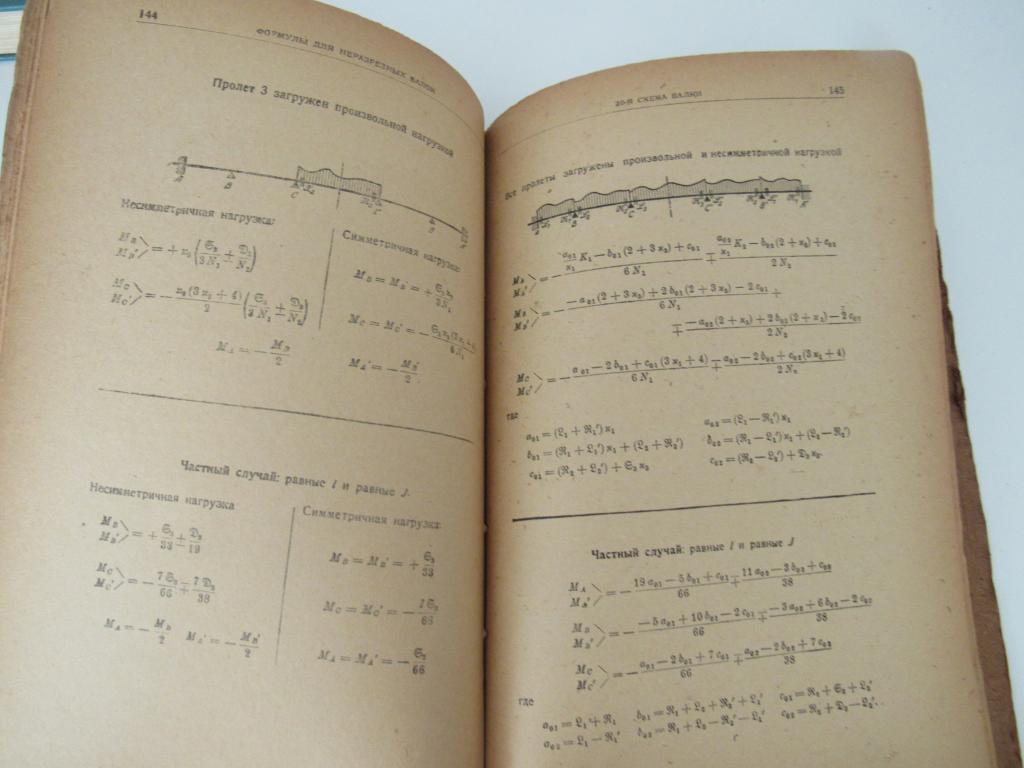 144
ФОРМУЛЫ ДЛЯ НЕРАЗРЕЗНЫХ БАЛОК
Пролет 3 загружен произвольной нагрузкой
A B C C B
Несимметричная нагрузка:
M_B, M_B' = + x_2 (𝔖_3/3N_1 ± 𝔇_3/N_2)
M_C, M_C' = − x_2(3x_1+4)/2 (𝔖_3/3N_1 ± 𝔇_3/N_2)
M_A = − M_B/2
Симметричная нагрузка:
M_B = M_B' = + 𝔖_3x_2/3N_1
M_C = M_C' = −
M_A' = − M_B'/2
Частный случай: равные l и равные J.
Несимметричная нагрузка
M_B, M_B' = + 𝔖_3/33 ± 𝔇_3/19
M_C, M_C' = − 7𝔖_3/66 ∓ 7𝔇_3/38
M_A = − M_B/2 M_A' = − M_B'/2
Симметричная нагрузка:
M_B = M_B' = + 𝔖_3/33
M_C = M_C' = − 7𝔖_3/66
M_A = M_A' = − 𝔖_3/66
20-Я СХЕМА БАЛКИ
145
Все пролеты загружены произвольной и несимметричной нагрузкой
M_A, M_A' = −
M_B, M_B' = − −a_01(2+3x_2)+2b_01(2+3x_2)−2c_01/6N_1 ∓
∓ −a_02(2+x_2)+2b_02(2+x_2)−2c_02/2N_2
M_C, M_C' = − a_01−2b_01+c_01(3x_1+4)/6N_1 ∓ a_02−2b_02+c_02(3x_1+4)/2N_2
где
a_01 = (𝔏_1+ℜ_1')x_1 a_02 = (𝔏_1−ℜ_1')x_1
b_01 = (ℜ_1+𝔏_1')x_1+(𝔏_2+ℜ_2') b_02 = (ℜ_1−𝔏_1')x_1+(𝔏_2−ℜ_2')
c_01 = (ℜ_2+𝔏_2')+𝔖_3x_2 c_02 = (ℜ_2−𝔏_2')+𝔇_3x_2.
Частный случай: равные l и равные J
M_A, M_A' = − 19a_01−5b_01+c_01/66 ∓ 11a_02−3b_02+c_02/38
M_B, M_B' = − −5a_01+10b_01−2c_01/66 ∓ −3a_02+6b_02−2c_02/38
M_C, M_C' = − a_01−2b_01+7c_01/66 ∓ a_02−2b_02+7c_02/38
где
a_01 = 𝔏_1+ℜ_1' b_01 = ℜ_1+𝔏_2+ℜ_2'+𝔏_1' c_01 = ℜ_2+𝔖_3+𝔏_2'
a_02 = 𝔏_1−ℜ_1' b_02 = ℜ_1+𝔏_2−ℜ_2'−𝔏_1' c_02 = ℜ_2+𝔇_3−𝔏_2'.